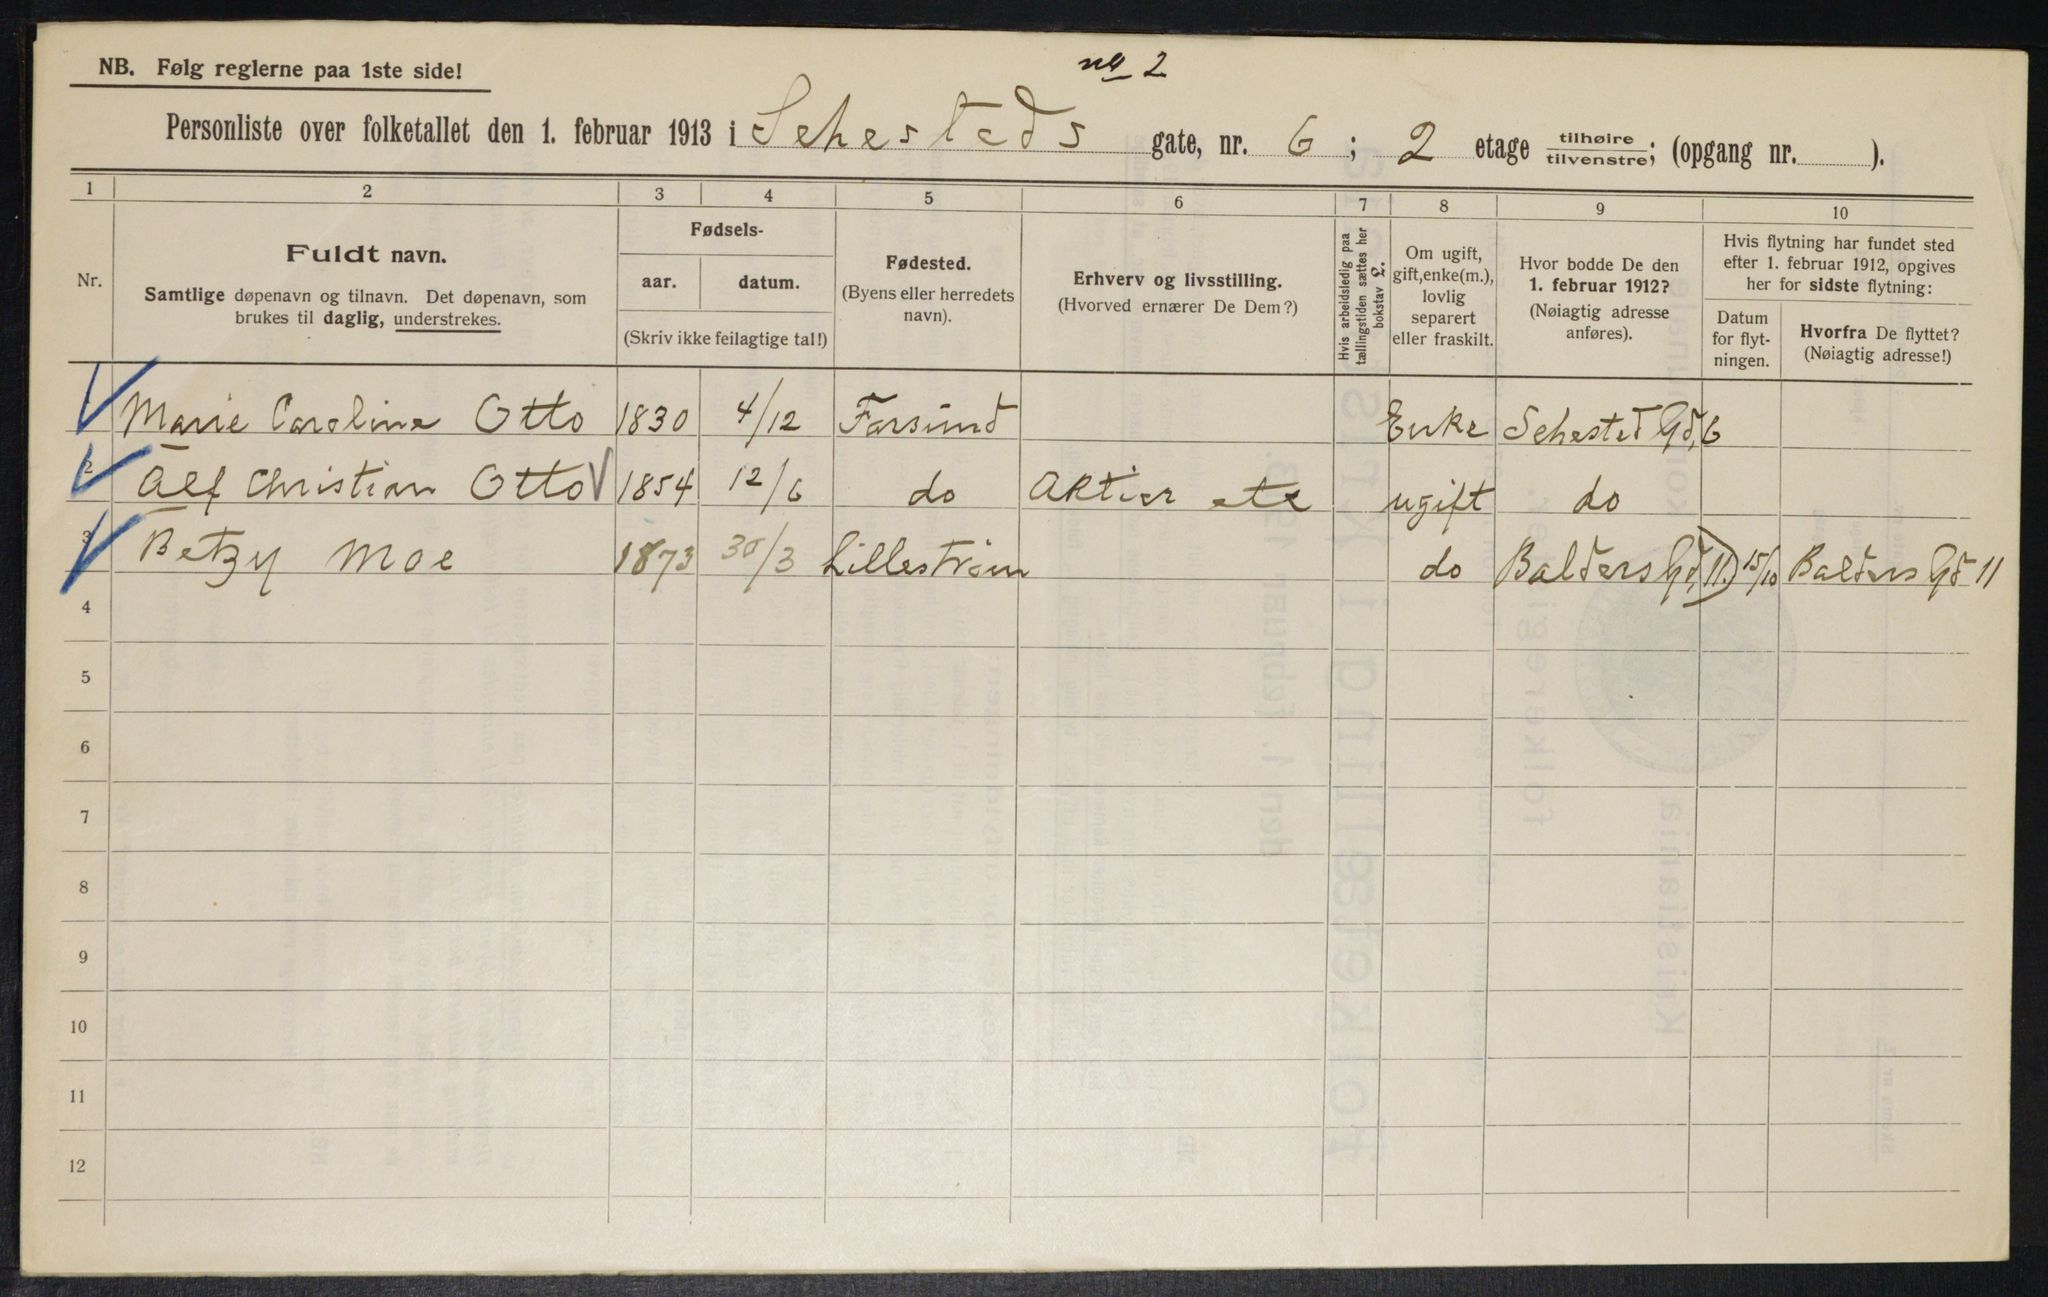 no 2
NB. Følg reglerne paa 1ste side!
Personliste over folketallet den 1. februar 1913 i Sehesteds gate, nr. 6; 2 etage tilhøire/tilvenstre; (opgang nr. ).
1 2 3 4 5 6 7 8 9 10
Nr.
Fuldt navn.
Samtlige døpenavn og tilnavn. Det døpenavn, som
brukes til daglig, understrekes.
Fødsels-
aar. datum.
(Skriv ikke feilagtige tal!)
Fødested.
(Byens eller herredets
navn).
Erhverv og livsstilling.
(Hvorved ernærer De Dem?)
Hvis arbeidsledig paa
tællingstiden sættes her
bokstav L.
Om ugift,
gift, enke(m.),
lovlig
separert
eller fraskilt.
Hvor bodde De den
1. februar 1912?
(Nøiagtig adresse
anføres).
Hvis flytning har fundet sted
efter 1. februar 1912, opgives
her for sidste flytning:
Datum
for flyt-
ningen.
Hvorfra De flyttet?
(Nøiagtig adresse!)
Marie Caroline Otto 1830 4/12 Farsund Enke Sehested Gd, 6
2 Alf Christian Otto 1854 12/6 do Aktier etc ugift do
3 Betzy Moe 1873 30/3 Lillestrøm do Balders Gd, 11) 15/10 Balders Gd 11
4
5
6
7
8
9
10
11
12